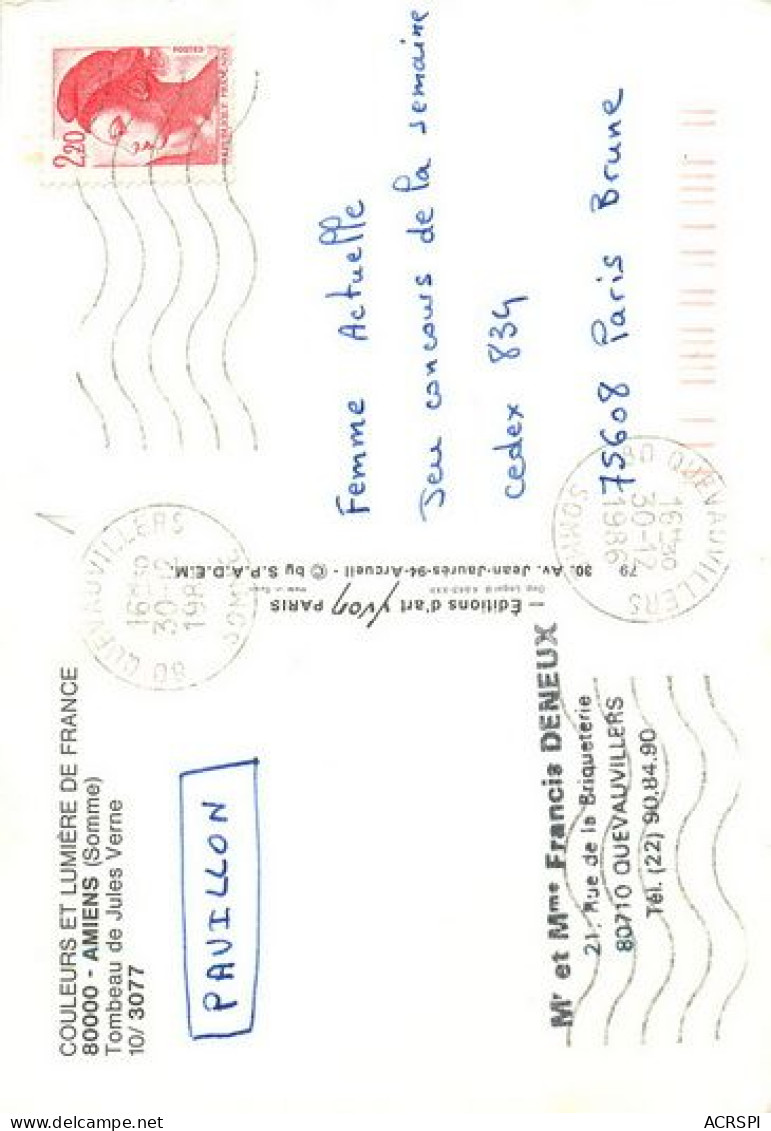 COULEURS ET LUMIÈRE DE FRANCE
80000 - AMIENS (Somme)
Tombeau de Jules Verne
10/ 3077
PAVILLON
Mr et Mme Francis DENEUX
21, Rue de la Briqueterie
80710 QUEVAUVILLERS
Tél. (22) 90.84.90
— Éditions d'art Yvon PARIS
30, Av. Jean-Jaurès-94-Arcueil - © by S.P.A.D.E.M.
79
80 QUEVAUVILLERS
16H30
30-12
SOMME
80 QUEVAUVILLERS
16H30
30-12
1986
SOMME
2,20
POSTES
RÉPUBLIQUE FRANÇAISE
Femme Actuelle
Jeu concours de la semaine
cedex 834
75608 Paris Brune
ACRSPI